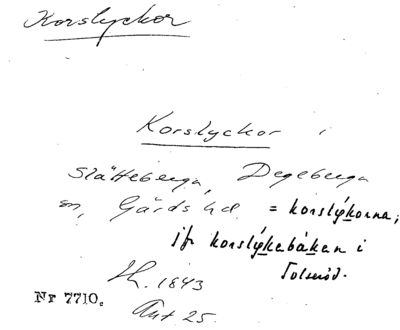 Korslyckor
Korslyckor i
Slätteberga, Degeberga
sn, Gärds hd. = korslýkorna;
jfr korslýkebáken i
Tolseröd.
Sk. 1843
Nr 7710. Ant 25.